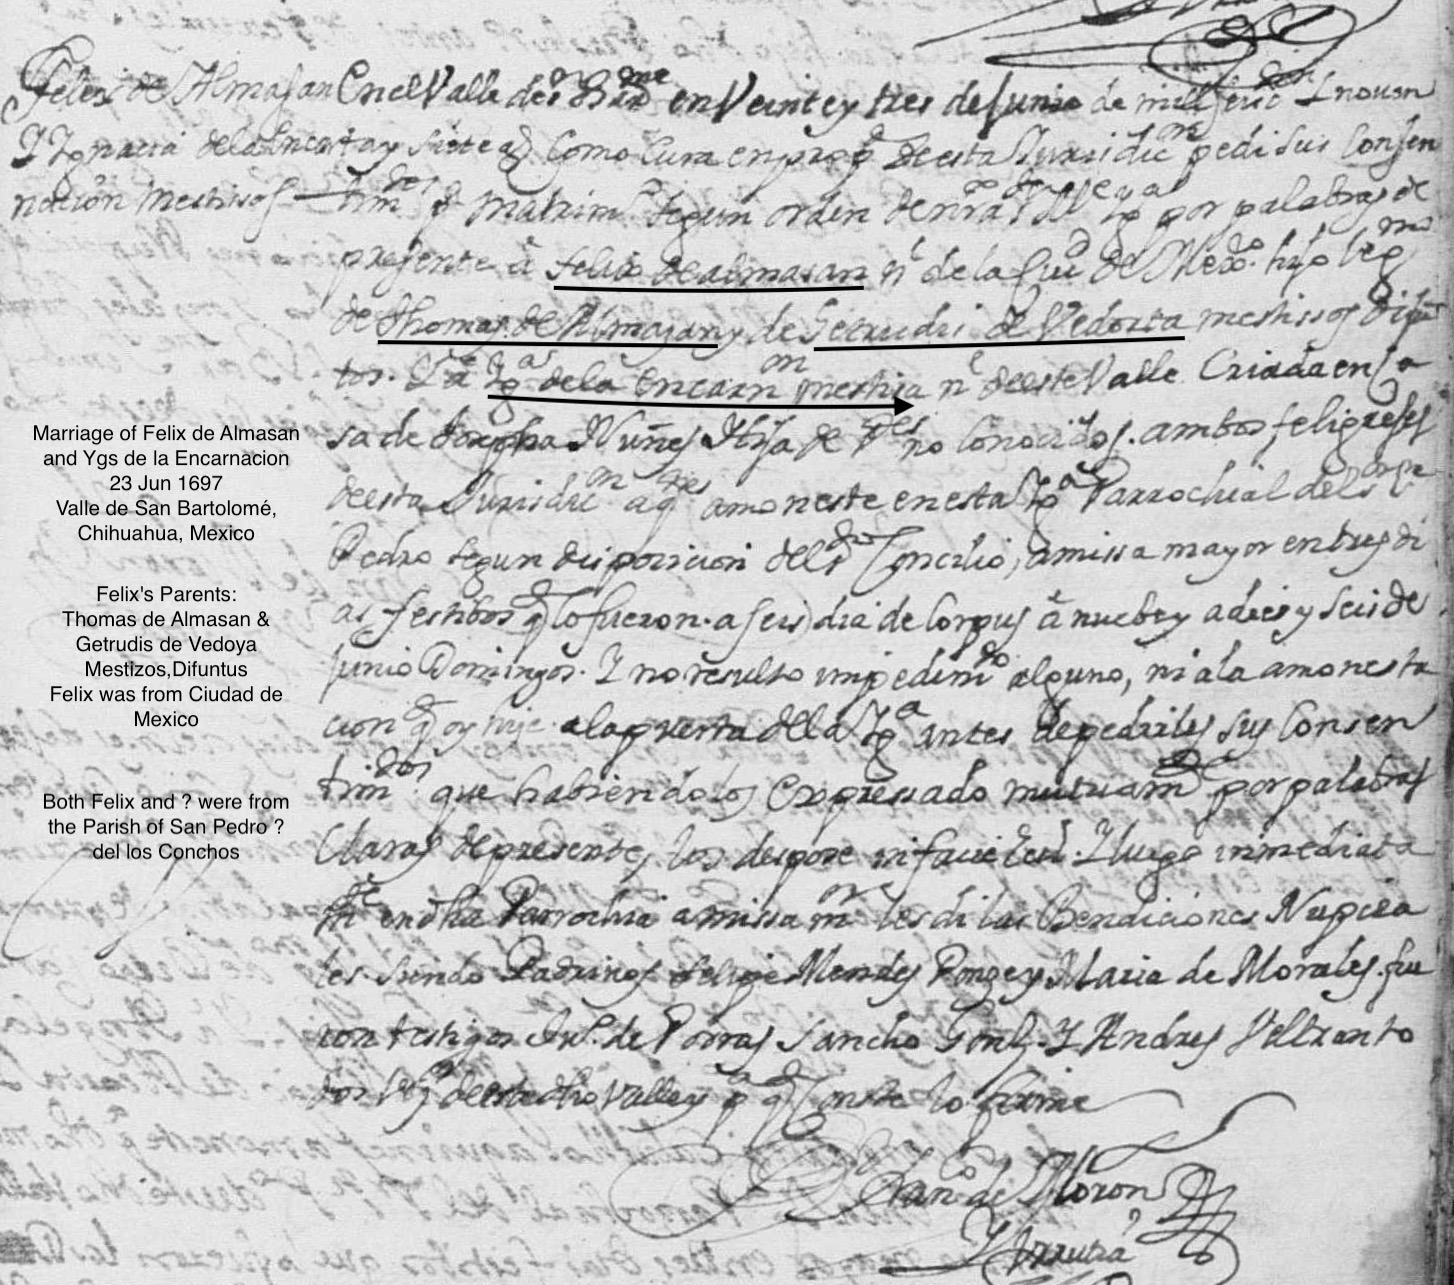 Felix de Almasan En el Valle de Sn Bme en Veinte y tres de Junio de mill seis. Y noven
Y Ygnacia de la Encar ta y siete as Como Cura en propd de esta Jurisdicn pedi sus Consen
nacion Mestisos timdos pa matrimo segun orden de nra Sta Me Yga por palabras de
presente â Felix de almasan nl de la Ciud de Mexo. hijo legmo
de Thomas de Almazan y de Getrudis de Vedoia mestissos difun
tos. Y â Ygas de la Encarn mestisa nl de este Valle Criada en Ca
sa de Josepha Nuñes Hija de Pes no Conocidos. ambos feligreses
de esta Jurisdicn a qnes amoneste en esta Yga Parrochial del
Pedro segun disposicion del Sto Concilio, a missa mayor en tres di
as festibos q lo fueron a seis dia de Corpus â nuebe y a dies y seis de
Junio Domingos. Y no resulto impedimto alguno, ni a la amonesta
cion q oy hise a la puerta de la Yga antes de pedirles sus Consen
timdos que habiendolos Expressado mutuamte por palabras
Claras de presente, los despose in facie Eccl. Y luego inmediata
mte en dha Parrochia a missa mr les di las Bendiciones Nupcia
les siendo Padrinos Felipe Mendes Ponze y Maria de Morales. fue
ron testigos de Porras Sancho Gonz. Y Andres Beltran to
dos de este dho Valle y pa q Conste lo firme
Franco de Moron
Marriage of Felix de Almasan
and Ygs de la Encarnacion
23 Jun 1697
Valle de San Bartolomé,
Chihuahua, Mexico
Felix's Parents:
Thomas de Almasan &
Getrudis de Vedoya
Mestizos,Difuntus
Felix was from Ciudad de
Mexico
Both Felix and ? were from
the Parish of San Pedro ?
del los Conchos